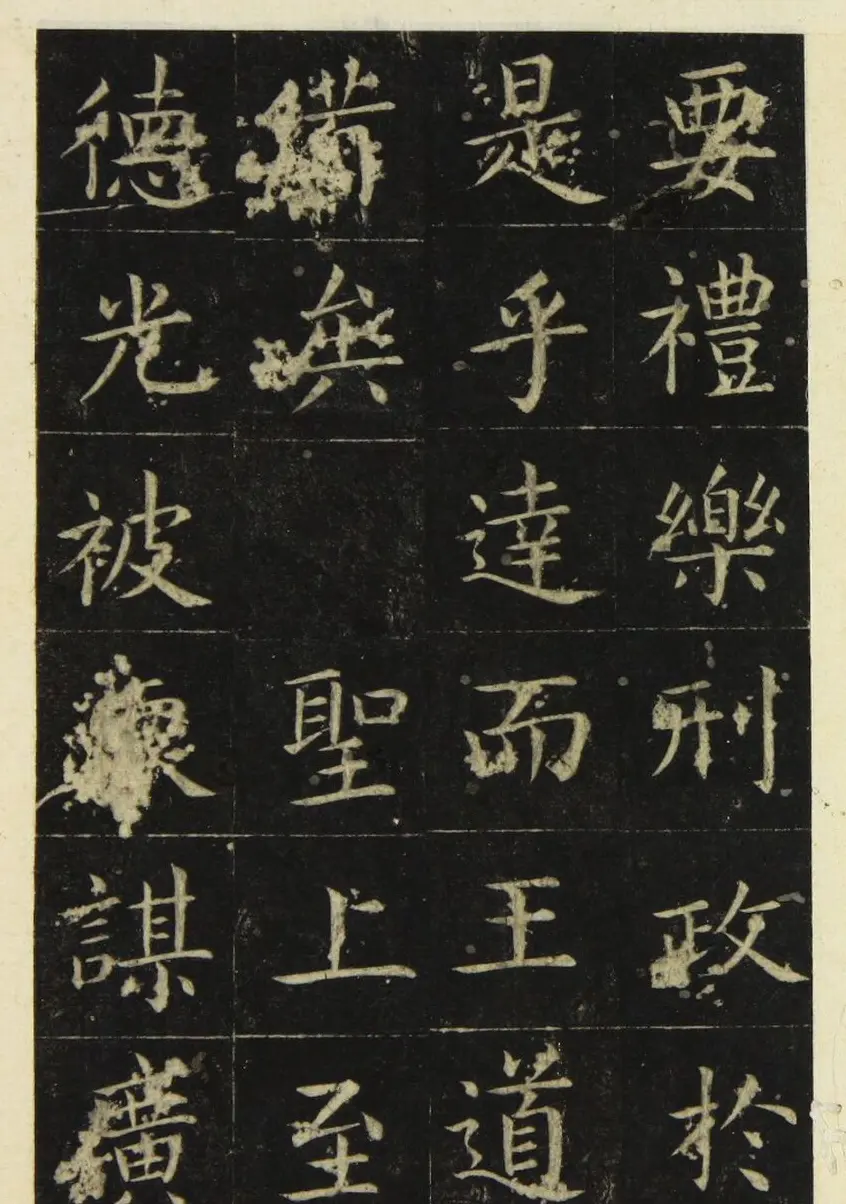 要禮樂刑政於
是乎達而王道
備矣聖上至
德光被謀廣